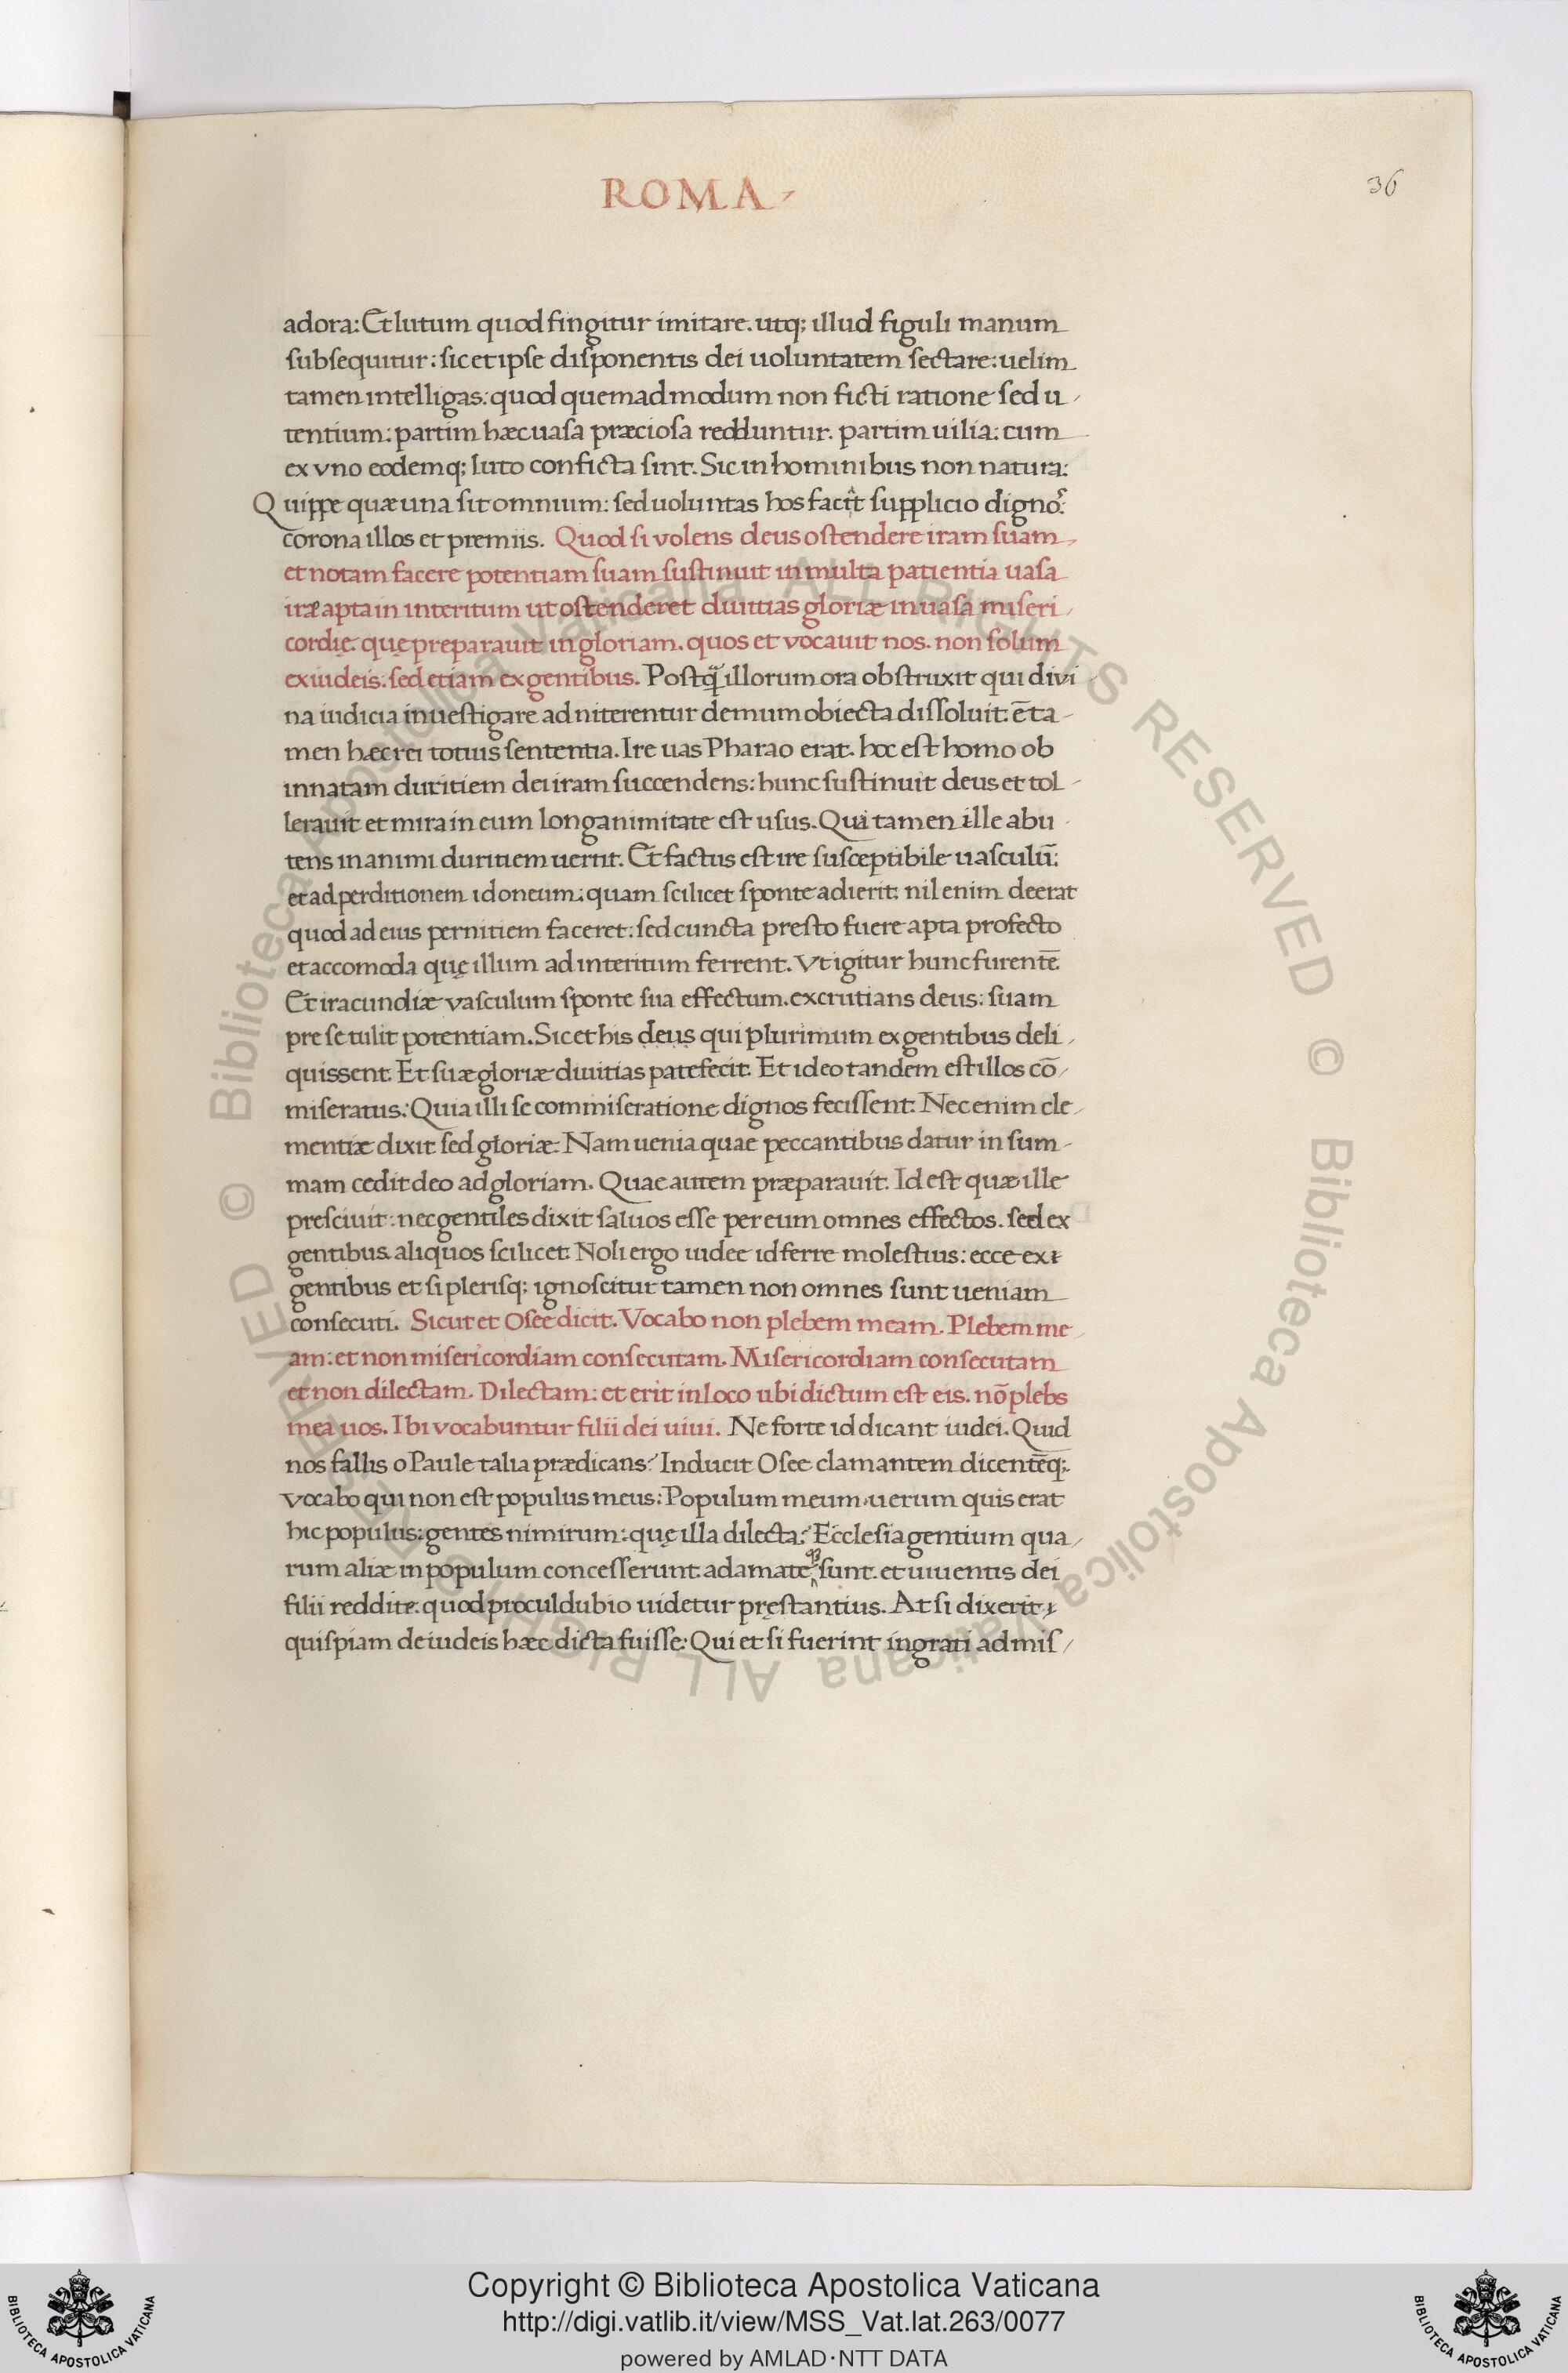 ROMA
36
adora: Et lutum quod fingitur imitare. utq; illud figuli manum
subsequitur: sic et ipse disponentis dei uoluntatem sectare: uelim
tamen intelligas: quod quemadmodum non ficti ratione sed u-
tentium: partim hæc uasa præciosa redduntur. partim uilia: cum
ex vno eodemq; luto conficta sint. Sic in hominibus non natura:
Quippe quæ una sit omnium: sed uoluntas hos facit supplicio dignos:
corona illos et premiis. Quod si volens deus ostendere iram suam
et notam facere potentiam suam sustinuit in multa patientia uasa
iræ apta in interitum ut ostenderet diuitias gloriæ in uasa miseri-
cordię. quę preparauit in gloriam. quos et vocauit nos. non solum
ex iudeis: sed etiam ex gentibus. Postq̃ illorum ora obstruxit qui divi-
na iudicia inuestigare adniterentur demum obiecta dissoluit: ē ta-
men hæc rei totius sententia. Ire uas Pharao erat. hoc est homo ob
innatam duritiem dei iram succendens: hunc sustinuit deus et tol-
lerauit et mira in eum longanimitate est usus. Qui tamen ille abu-
tens in animi duritiem uertit. Et factus est ire susceptibile uasculū:
et ad perditionem idoneum: quam scilicet sponte adierit: nil enim deerat
quod ad eius pernitiem faceret: sed cuncta presto fuere apta profecto
et accomoda quę illum ad interitum ferrent. Vt igitur hunc furentē
Et iracundiæ vasculum sponte sua effectum. excrutians deus: suam
pre se tulit potentiam. Sic et his deus qui plurimum ex gentibus deli-
quissent. Et suæ gloriæ diuitias patefecit. Et ideo tandem est illos cō-
miseratus: Quia illi se commiseratione dignos fecissent. Nec enim cle-
mentiæ dixit sed gloriæ. Nam uenia quae peccantibus datur in sum-
mam cedit deo ad gloriam. Quae autem præparauit. Id est quæ ille
presciuit: nec gentiles dixit saluos esse per eum omnes effectos. sed ex
gentibus aliquos scilicet. Noli ergo iudee id ferre molestius: ecce ex
gentibus et si plerisq; ignoscitur tamen non omnes sunt ueniam
consecuti. Sicut et Osee dicit. Vocabo non plebem meam. Plebem me-
am: et non misericordiam consecutam. Misericordiam consecutam
et non dilectam. Dilectam: et erit in loco ubi dictum est eis. nō plebs
mea uos. Ibi vocabuntur filii dei uiui. Ne forte id dicant iudei. Quid
nos fallis o Paule talia prædicans? Inducit Osee clamantem dicentēq;
vocabo qui non est populus meus: Populum meum. uerum quis erat
hic populus: gentes nimirum: quę illa dilecta? Ecclesia gentium qua-
rum aliæ in populum concesserunt adamate sunt. et uiuentis dei
filii reddite. quod proculdubio uidetur pręstantius. At si dixerit
quispiam de iudeis hæc dicta fuisse: Qui et si fuerint ingrati admis-
Copyright © Biblioteca Apostolica Vaticana
http://digi.vatlib.it/view/MSS_Vat.lat.263/0077
powered by AMLAD·NTT DATA
BIBLIOTECA APOSTOLICA VATICANA
BIBLIOTECA APOSTOLICA VATICANA
© Biblioteca Apostolica Vaticana ALL RIGHTS RESERVED
© Biblioteca Apostolica Vaticana ALL RIGHTS RESERVED